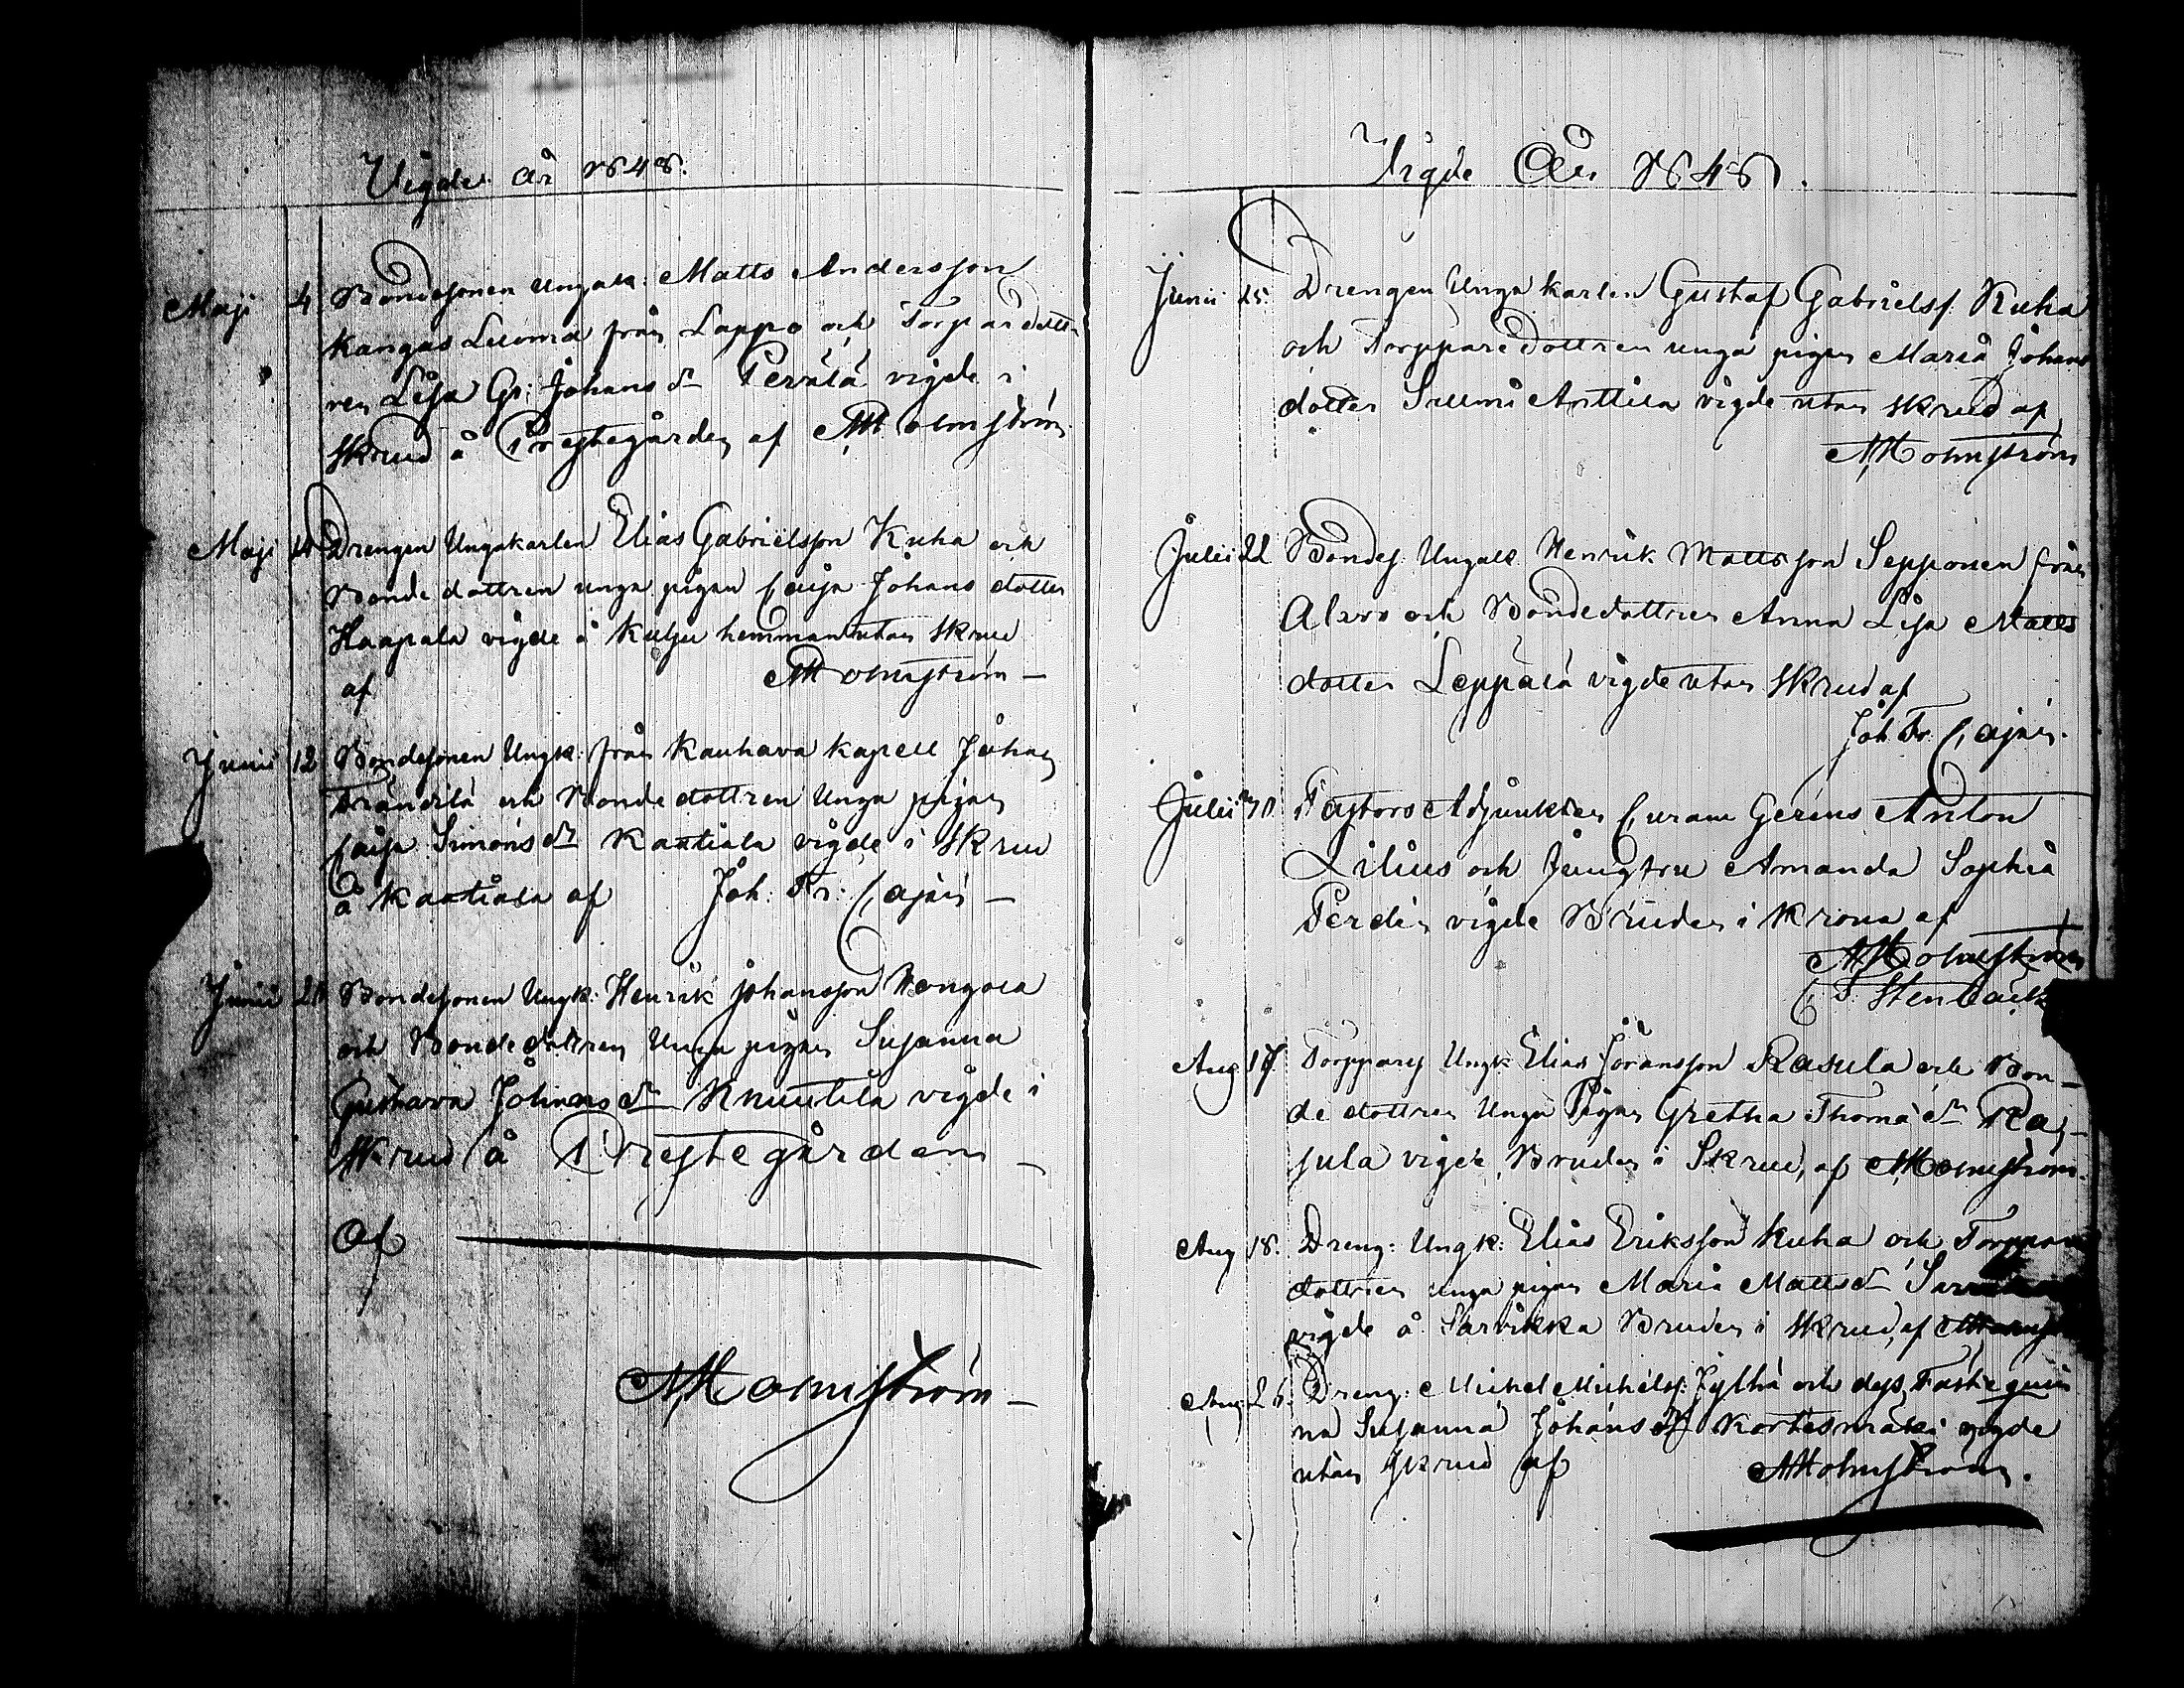 Vigde år 1848.
Maji 4 Bondesonen Ungk: Matts Andersson
Kangas Luoma från Lappo och Torpardott
ren Lisa Gr: Johansdr Perälä vigde i
skrud å Prestegården af AHolmström
Maji 14 Drengen Ungakarlen Elias Gabrielsson Kuha och
Bondedottren unga pigan Caisa Johans dotter
Haapala vigde å hemman utan skrud
af AHolmström
Junii 12 Bondesonen Ungk: från Kauhava Kapell Johan
och Bondedottren Unga pigan
Caisa Simonsdr Kantiala vigde i Skrud
å Kantiala af Joh: Fr: Cajan
Junii 24 Bondesonen Ungk: Henrik Johansson
och Bondedottren Unga pigan Susanna
Gustava Johansdr Knuutila vigde i
Skrud å Prestegården
Af
AHolmström
Vigde År 1848.
Junii 25. Drengen Unga karlen Gustaf Gabrielss. Kuha
och Torppare dottren unga pigan Maria Johans
dotter Anttila vigde utan skrud af
AHolmström
Julii 22 Bondes. Ungk Henrik Mattsson Sepponen från
Alavo och Bondedottren Anna Lisa Matts
dotter Leppälä vigde utan skrud af
Joh Fr. Cajan.
Julii 30 Pastors Adjunkten Anton
Lilius och Jungfru Amanda Sophia
Perdén vigde Bruden i Krona af
AHolmström
Stenbäck
Aug 17 Torppares Ungk Elias Göransson Rasula och Bon-
de dottren Unga Pigan Gretha Thomædr Ra-
sula vigde, Bruden i Skrud, af AHolmström.
Aug 18. Dreng: Ungk: Elias Eriksson Kuha och Torppare
dottren unga pigan Maria Mattsdr
vigde å Sarvikka Bruden i skrud, af AHolmström
Aug 26. Dreng: Michel Michelss: Jylhä och dess Fästeqvin
na Susanna Johansdr Kortesmäki vigde
utan skrud af AHolmström.